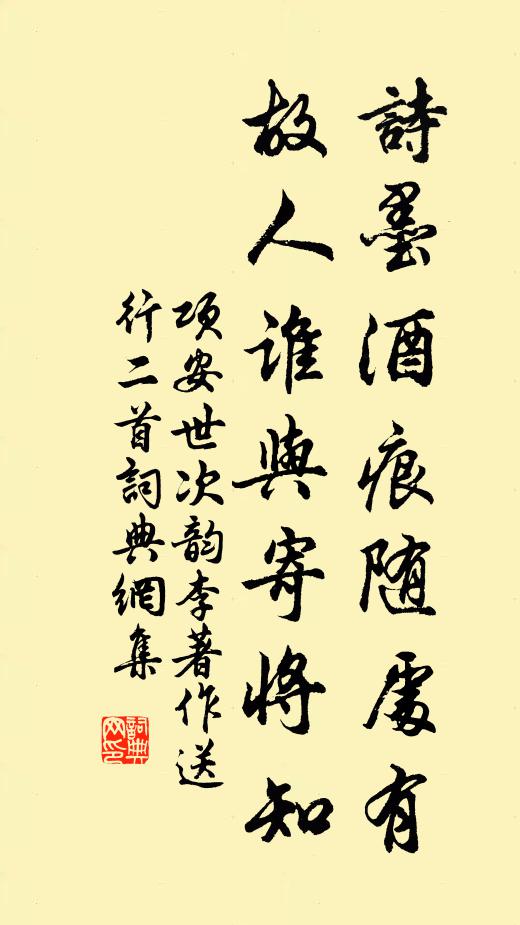 詩墨酒痕随處有
故人誰與寄將知
項安世次韵李著作送
行二首詞典網集
詞典
网印